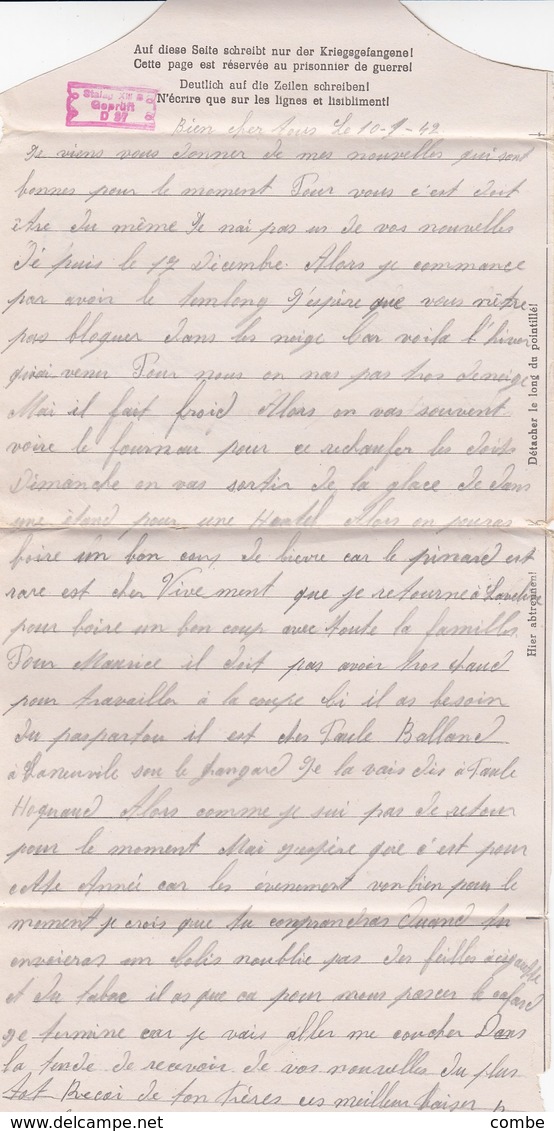 Auf diese Seite schreibt nur der Kriegsgefangene!
Cette page est réservée au prisonnier de guerre!
Deutlich auf die Zeilen schreiben!
N'écrire que sur les lignes et lisiblement!
Stalag XII
Geprüft
Bien cher tous Le 10-1-42
Je viens vous donner de mes nouvelles qui sont
bonnes pour le moment Pour vous c'est doit
être du même Je nai pas us de vos nouvelles
dé puis le 17 Décembre. Alors je commance
par avoir le temlong J'espère que vous n'ètre
pas bloquer dans les neige Car voila l'hiver
vener Pour nous on nas pas tros deneige
Mai il fait froid Alors on vas souvent
voire le fournau pour ce rechaufer les doits
Dimanche on vas sortir de la glace de dans
une étand pour une Hautel Alors on pouras
boire un bon cous de bievre car le pinard est
rare est cher Vivement que je retourne à Laveline
pour boire un bon coup avec toute la familles
Pour Maurice il doit pas avoir tros chaud
pour travailler à la coupe Si il as besoin
du paspartou il est cher Paule Balland
à Laneuvile sou le hangard Je la vais dis à Paule
Alors comme je sui pas de retour
pour le moment Mai j'espère que c'est pour
cète Année car les évenement von bien pour le
moment je crois que tu conprandras Quand tu
envoieras un Colis noublie pas des feilles
et du tabac il as que ca pour nous passer le cafard
Je termine car je vais aller me coucher Dans
la tende de recevoir de vos nouvelles du plus
tot Recoi de ton Frères ces meilleur baiser
Détacher le long du pointillé!
Hier abtrennen!